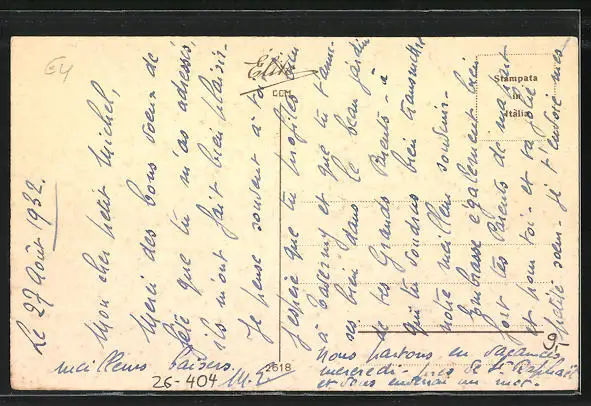 Le 27 Août 1932.
Mon cher petit Michel,
Merci des bons voeux de
fête que tu m'as adressés,
ils m'ont fait bien plaisir.
Je pense souvent à toi
j'espère que tu profites bien
à et que tu t'amu-
ses bien dans le beau jardin
de tes Grands Parents - à
qui tu voudras bien transmettre
notre meilleur souvenir.
Embrasse également bien
fort tes Parents de ma part
et pour toi - et ta
petite soeur - je t'envoie mes
meilleurs baisers.
Nous partons en vacances
mercredi - près de St Raphaël
et vous enverrai un mot.
Elite
CCM
Stampata
in
Italia
2618
E4
26-404
9,-